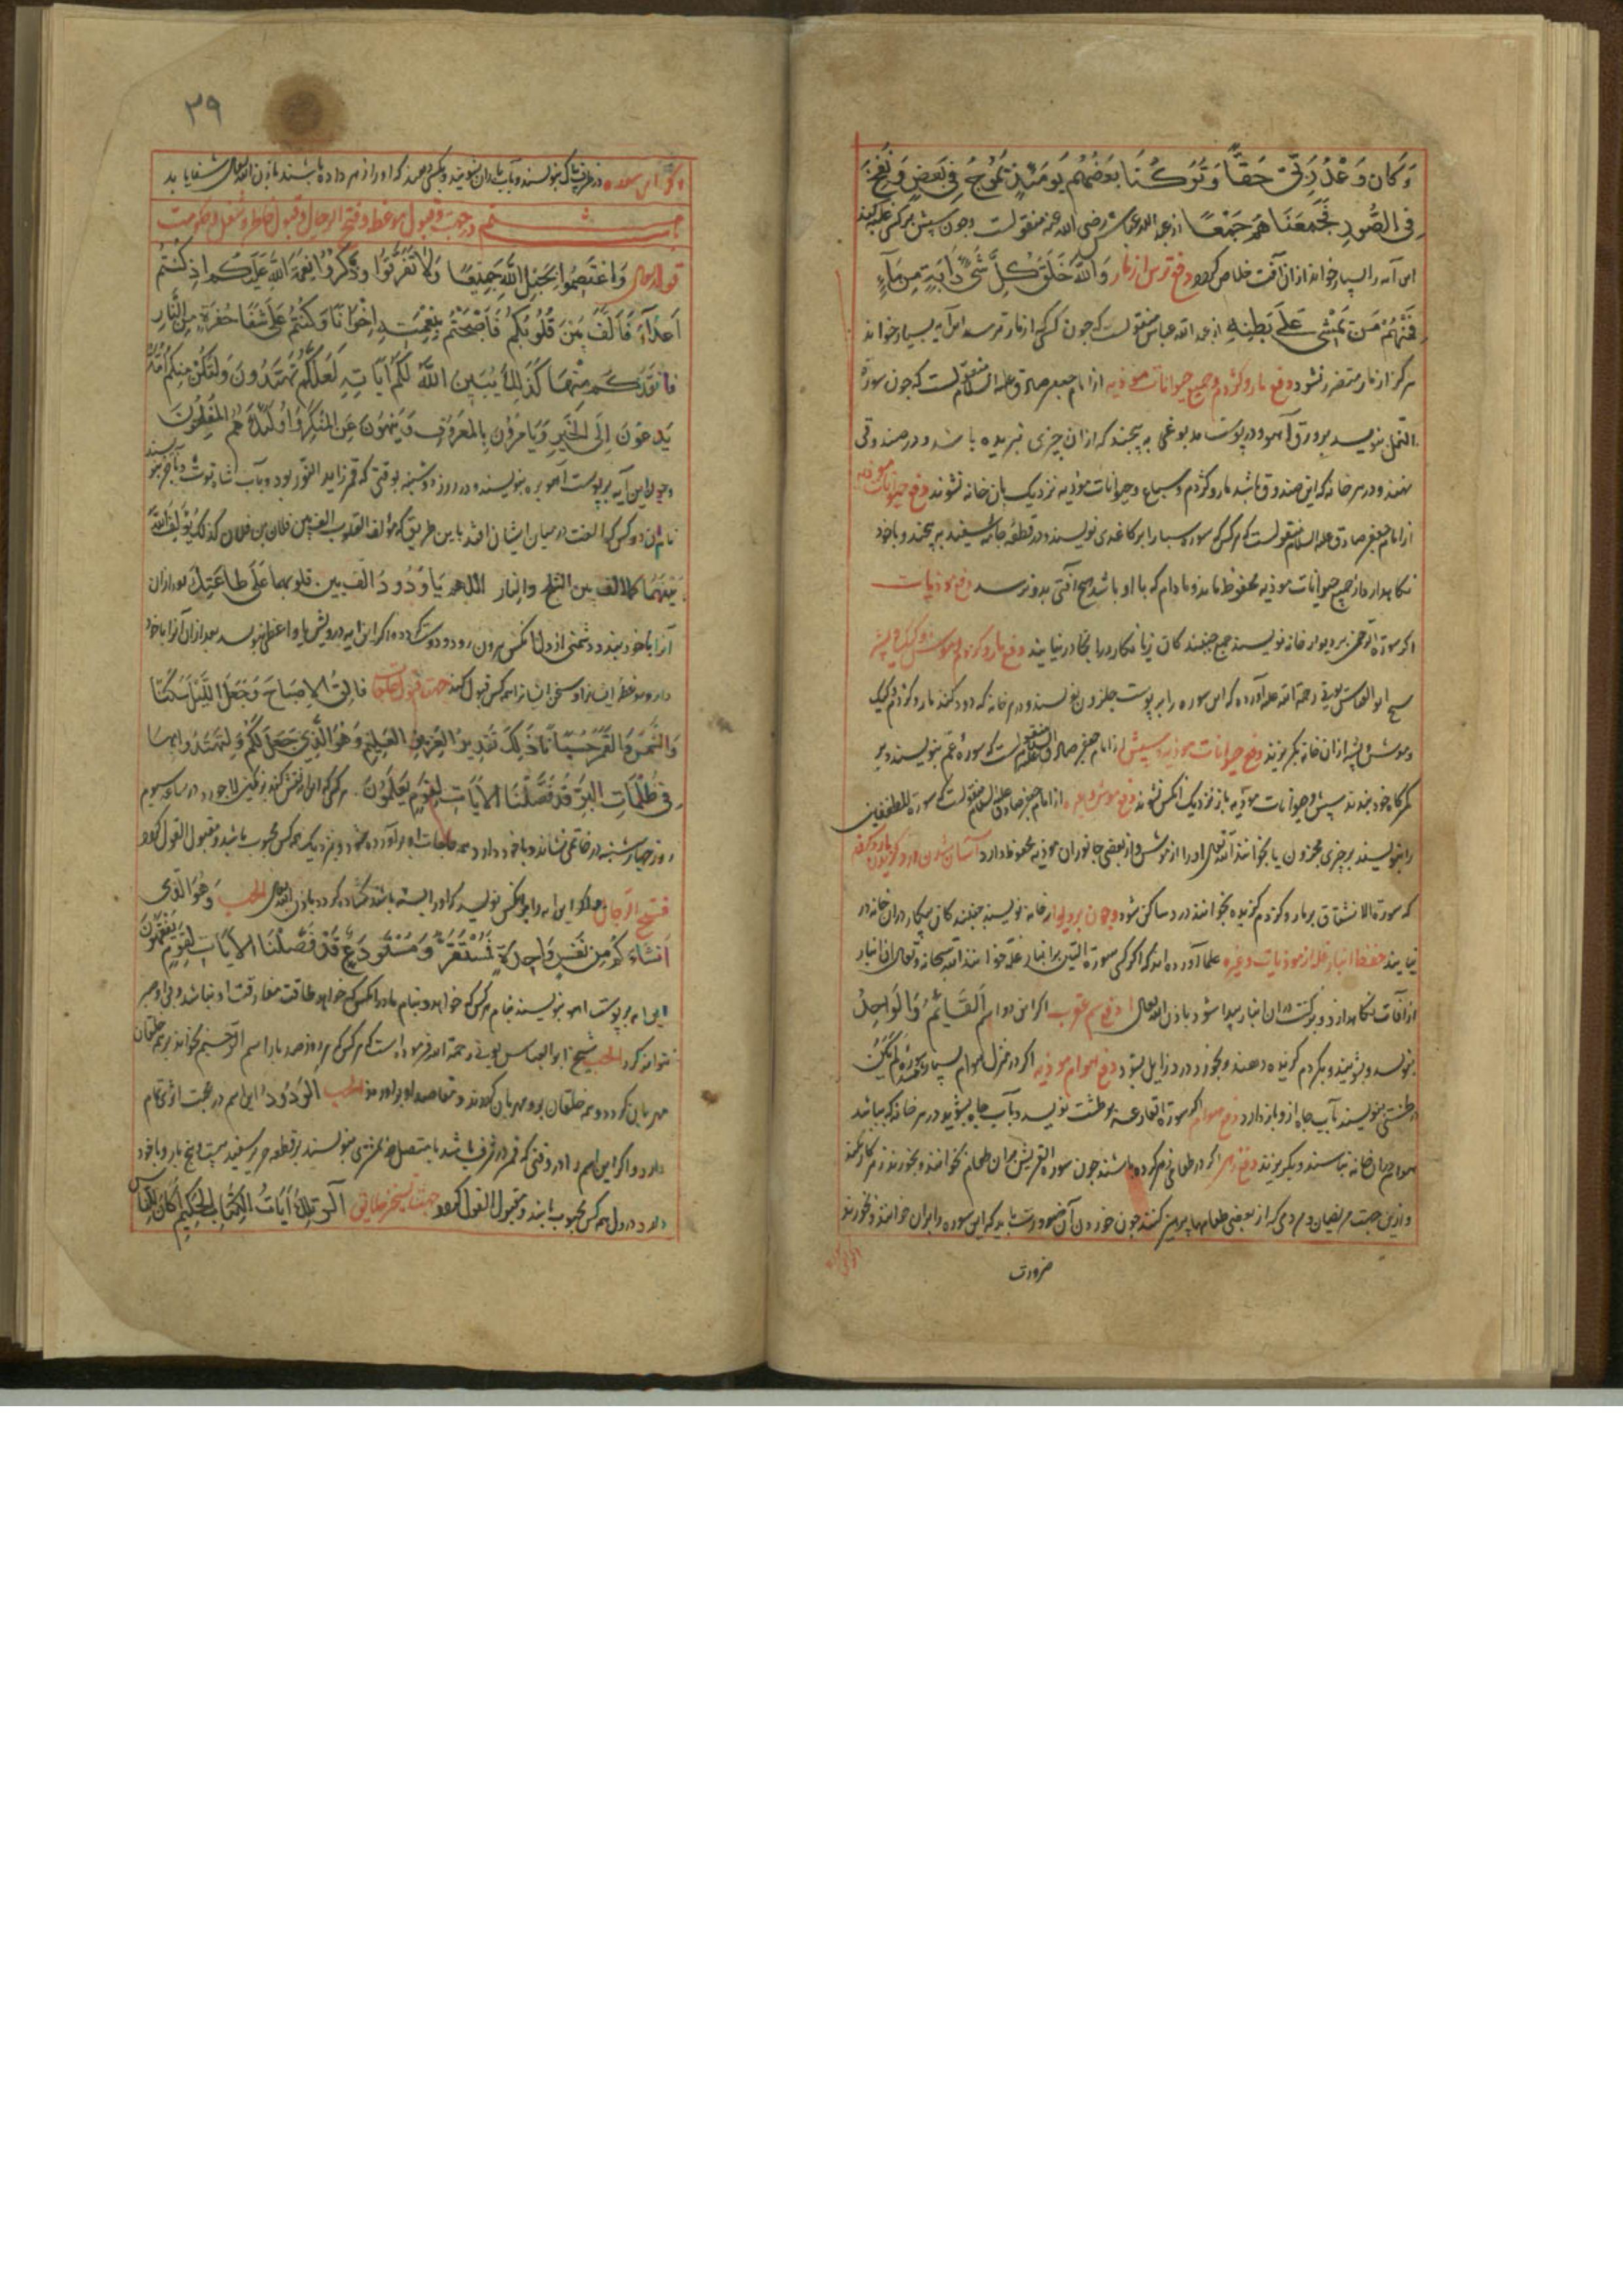 وَكَانَ وَعْدُ رَبِّي حَقًّا وَتَرَكْنَا بَعْضَهُمْ يَوْمَئِذٍ يَمُوجُ فِي بَعْضٍ وَنُفِخَ
فِي الصُّورِ فَجَمَعْنَاهُمْ جَمْعًا از عبد الله عباس رضی الله عنه منقولست چون سپش بر کسی غلبه کند
این آیه را بسیار خواند از آن آفت خلاص کردد دفع ترس از مار وَاللَّهُ خَلَقَ كُلَّ دَابَّةٍ مِنْ مَاءٍ
فَمِنْهُمْ مَنْ يَمْشِي عَلَى بَطْنِهِ از عبد الله عباس منقولست که چون کسی از مار ترسد این آیه بسیار خواند
هرکز از مار متضرر نشود دفع مار و کژدم و جمیع حیوانات موذیه از امام جعفر صادق علیه السلام منقولست که چون سورة
النمل بنویسد بر ورق آهو و در پوست مدبوغی به پیچند که از آن چیزی نبریده باشد و در صندوقی
نهند و در هر خانه که این صندوق باشد مار و کژدم و سباع و حیوانات موذیه نزدیک بان خانه نشوند دفع حیوانات موذیه
از امام جعفر صادق علیه السلام منقولست که هر کس که سوره سبا را بر کاغذی نویسد و در قطعه جامه سفید به پیچند و با خود
نکاهدارد از جمیع حیوانات موذیه محفوظ ماند و مادام که با او باشد هیچ آفتی بدو نرسد دفع موذیات
اکر سورة الرحمن بر دیوار خانه نویسند جمیع جنبندکان زیانکار در آنجا در نیایند دفع مار و کژدم و موش و کیک و پشه
شیخ ابو العباس بونی رحمة الله علیه آورده که این سوره را بر پوست حلزون بنویسند و در خانه که دود کنند مار و کژدم و کیک
و موش و پشه از آن خانه بکریزند دفع حیوانات موذیه و سپش از امام جعفر صادق علیه السلام منقولست که سورة عم بنویسند و بر
کمرکاه خود بندند سپش و حیوانات موذیه نزدیک آنکس نشوند دفع موش و غیره از امام جعفر صادق علیه السلام منقولست که سورة المطففین
را بنویسند بر چیزی مخزون یا بخوانند الله تعالی او را از موش و از بعضی جانوران موذیه محفوظ دارد
که سورة الانشقاق بر مار و کژدم کزیده بخوانند درد ساکن شود و چون بر دیوار خانه نویسند جنبندکان در آن خانه در
نیایند حفظ انبار غله از موذیات و غیره علما آورده اند که اکر کسی سورة التین بر انبار غله خواند الله سبحانه و تعالی آن انبار
از آفات نکاهدارد و برکت در آن انبار پیدا شود باذن الله تعالی دفع سم عقرب اکر این دو اسم القَائِمُ وَالوَاحِدُ
بنویسد و بشویند و بکژدم کزیده دهند و بخورد درد زایل بشود دفع هوام موذیه اکر در منزل هوام بسیار سورة لَمْ يَكُنْ
در طشتی بنویسند بآب چاه دفع هوام اکر سورة القارعة بر طشت نویسد و بآب چاه بشوید در هر خانه که بپاشد
هوام در آن خانه نباشند و بکریزند دفع زهر اکر در طعامی زهر کرده باشند چون سوره القریش بر آن طعام بخوانند و بخورند زهر کار نکند
و ازین جهت مریضان و مردمی که از بعضی طعامها پرهیز کنند چون خوردن آن ضرورت باید که این سوره را بر آن خوانند و بخورند
ضرورت
٣٩
و کر این سوره در ظرف پاک بنویسند و بآب باران بشویند و بکسی دهند که او را زهر داده باشند باذن الله تعالی شفا یابد
باب ششم در جهت و قبول موعظه و فتح الرجال و قبول خلق و شغل و حکومت
قوله تعالی وَاعْتَصِمُوا بِحَبْلِ اللَّهِ جَمِيعًا وَلَا تَفَرَّقُوا وَاذْكُرُوا نِعْمَةَ اللَّهِ عَلَيْكُمْ إِذْ كُنْتُمْ
أَعْدَاءً فَأَلَّفَ بَيْنَ قُلُوبِكُمْ فَأَصْبَحْتُمْ بِنِعْمَتِهِ إِخْوَانًا وَكُنْتُمْ عَلَى شَفَا حُفْرَةٍ مِنَ النَّارِ
فَأَنْقَذَكُمْ مِنْهَا كَذَلِكَ يُبَيِّنُ اللَّهُ لَكُمْ آيَاتِهِ لَعَلَّكُمْ تَهْتَدُونَ وَلْتَكُنْ مِنْكُمْ أُمَّةٌ
يَدْعُونَ إِلَى الْخَيْرِ وَيَأْمُرُونَ بِالْمَعْرُوفِ وَيَنْهَوْنَ عَنِ الْمُنْكَرِ وَأُولَئِكَ هُمُ الْمُفْلِحُونَ
و چون این آیه بر پوست آهو بره بنویسند در روز دوشنبه بوقتی که قمر زاید النور بود و بآب شاه توت
نام آن دو کس که الفت در میان ایشان افتد باین طریق که مؤلف القلوب الف بین فلان بن فلان کذلک یؤلف الله
بینهما کما الف بین الثلج والنار اللهم یا وَدُودُ الف بین قلوبهما عَلَى طاعَتِكَ بعد از آن
آنرا با خود بندد دشمنی از دل آنکس بیرون رود و دوست کردد و اکر این آیه درویش یا واعظ بنویسد بعد از آن آنرا با خود
دارد موعظه ایشان را و سخن ایشان را همه کس قبول کنند جهت قبول خلق فَالِقُ الْإِصْبَاحِ وَجَعَلَ اللَّيْلَ سَكَنًا
وَالشَّمْسَ وَالْقَمَرَ حُسْبَانًا ذَلِكَ تَقْدِيرُ الْعَزِيزِ الْعَلِيمِ وَهُوَ الَّذِي جَعَلَ لَكُمُ لِتَهْتَدُوا بِهَا
فِي ظُلُمَاتِ الْبَرِّ قَدْ فَصَّلْنَا الْآيَاتِ لِقَوْمٍ يَعْلَمُونَ هر کس که این نقش کند بر نکین لاجورد در ساعت سیوم
روز چهارشنبه در خاتمی نشاند و با خود دارد همه حاجات او برآورده شود و نزدیک همه کس محبوب باشد و مقبول القول کردد
فتح الرجال اکر این آیه را بر آنکس نویسد که او را بسته باشند کشاده کردد باذن الله تعالی الحب وَهُوَ الَّذِي
أَنْشَأَكُمْ مِنْ نَفْسٍ وَاحِدَةٍ فَمُسْتَقَرٌّ وَمُسْتَوْدَعٌ قَدْ فَصَّلْنَا الْآيَاتِ لِقَوْمٍ يَفْقَهُونَ
این آیه بر پوست آهو بنویسند بنام هر کس که خواهد و بنام مادر آنکس که خواهد طاقت مفارقت او نباشد و بی او صبر
نتواند کرد الحب شیخ ابو العباس بونی رحمة الله فرموده است که هر کس که هر روز صد بار اسم الرَّحِيم بخواند بر همه خلقان
مهربان کردد و همه خلقان برو مهربان کردند و مقاصد او برآورند الحب الوَدُودُ این اسم در محبت اثری تمام
دارد و اکر این اسم را در وقتی که قمر در شرف باشد یا متصل بمشتری بنویسند بر قطعه حریر سفید سی و پنج بار و با خود
دارد در دل همه کس محبوب باشد و مقبول القول کردد جهت تسخیر خلایق الر تِلْكَ آيَاتُ الْكِتَابِ الْحَكِيمِ أَكَانَ لِلنَّاسِ